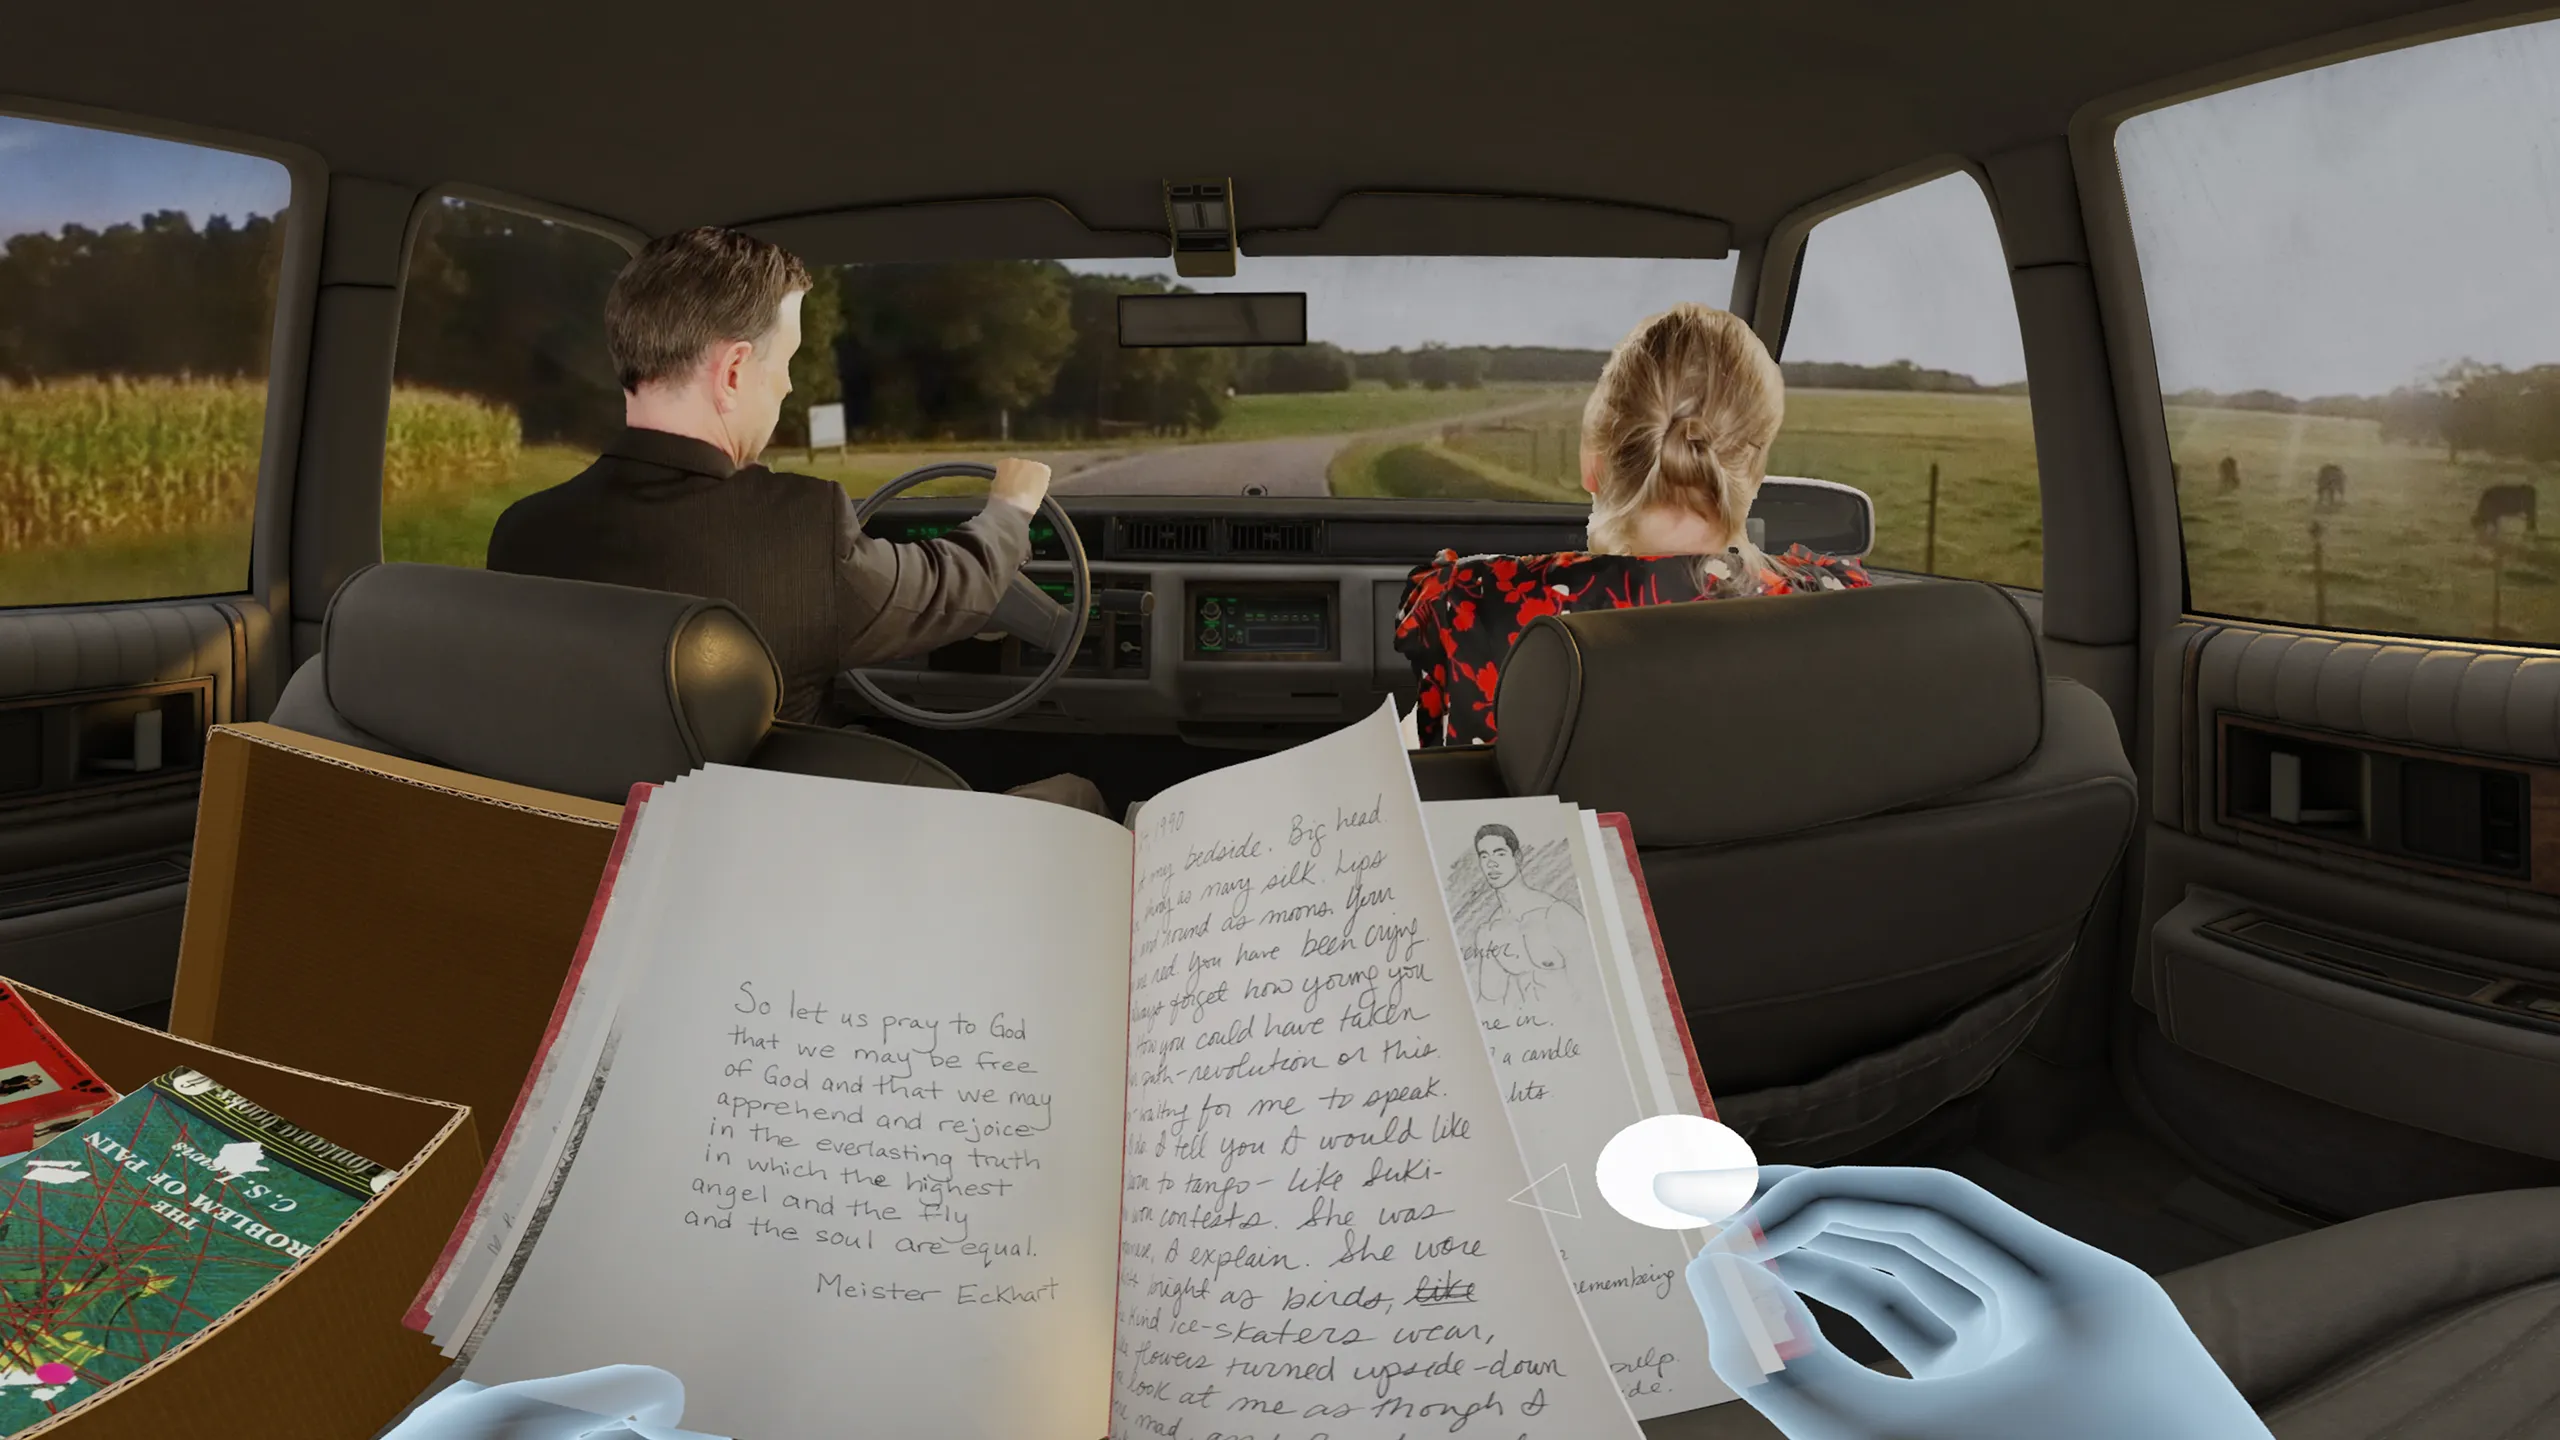 So let us pray to God
that we may be free
of God and that we may
apprehend and rejoice
in the everlasting truth
in which the highest
angel and the fly
and the soul are equal.
Meister Eckhart
1990
my bedside. Big head.
as navy silk. Lips
and round as moons. Your
red. You have been crying.
forget how young you
How you could have taken
revolution or this.
waiting for me to speak.
I tell you I would like
to tango- like Suki-
won contests. She was
I explain. She wore
bright as birds, like
kind ice-skaters wear,
flowers turned upside-down
look at me as though I
mad
in.
a candle
remembeing
pulp.
fontana books
C.S. Lewis
THE
PROBLEM OF PAIN